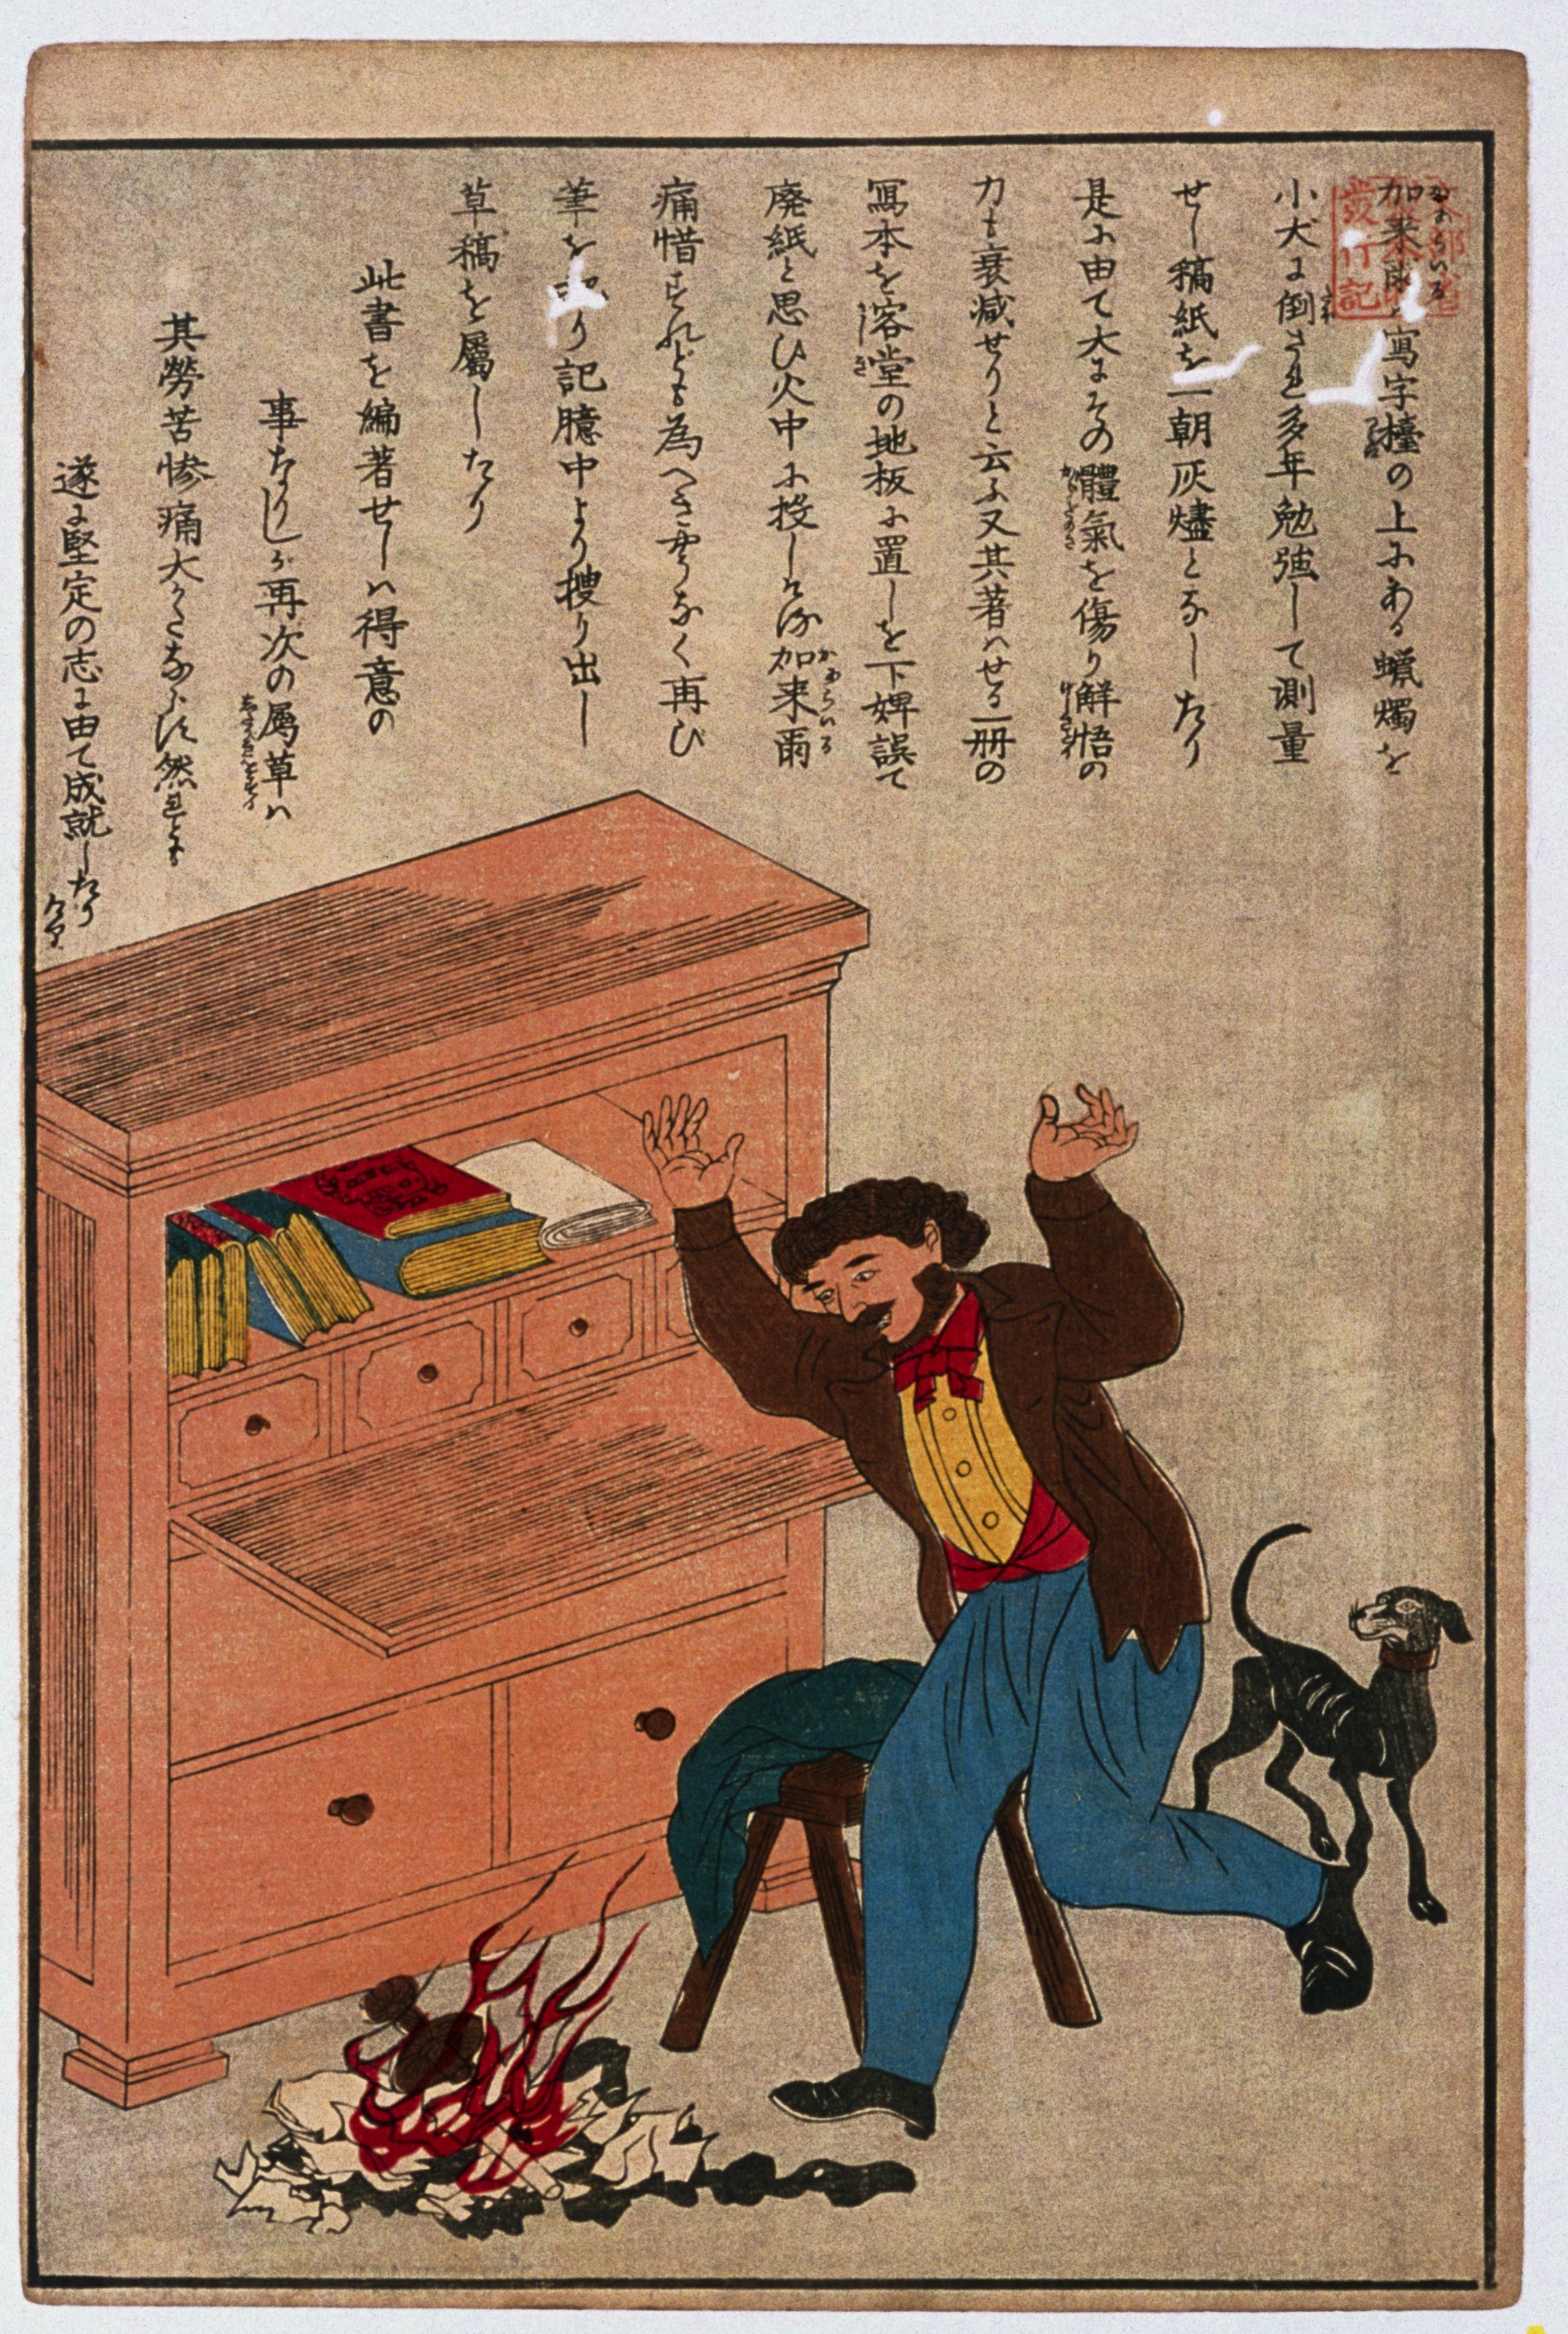 加来 寫字檯の上にある蝋燭を
小犬に倒され多年勉強して測量
せし稿紙を一朝灰燼となしたり
是に由て大にその體氣を傷り解悟の
力も衰減せりと云ふ又其著ハせる一册の
寫本を客堂の地板に置しを下婢誤て
廃紙と思ひ火中に投しける加来爾
痛惜すれども為へきやうなく再び
筆を り記臆中より搜り出し
草稿を屬したり
此書を編著せしハ得意の
事なりしが再次の屬草ハ
其勞苦惨痛大かたならす然れども
遂に堅定の志に由て成就したり
發行記